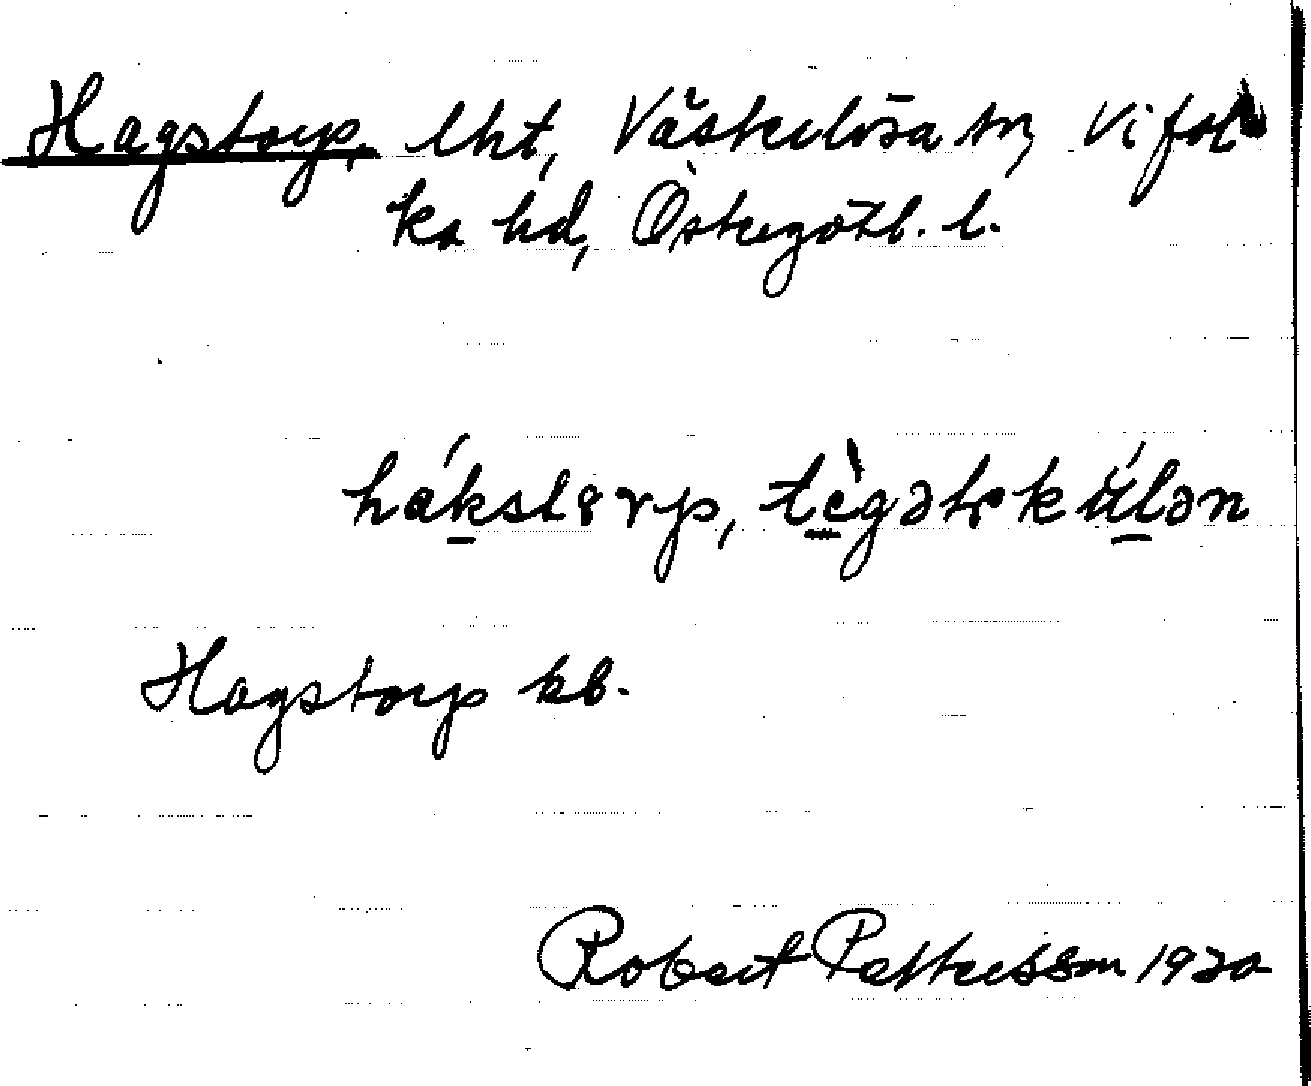 Hagstorp, lht, Västerlösa sn, Vifol
ka hd, Östergötl. l.
hákst8rp, tègəls kúlən
Hagstorp kb.
Robert Pettersson 1920